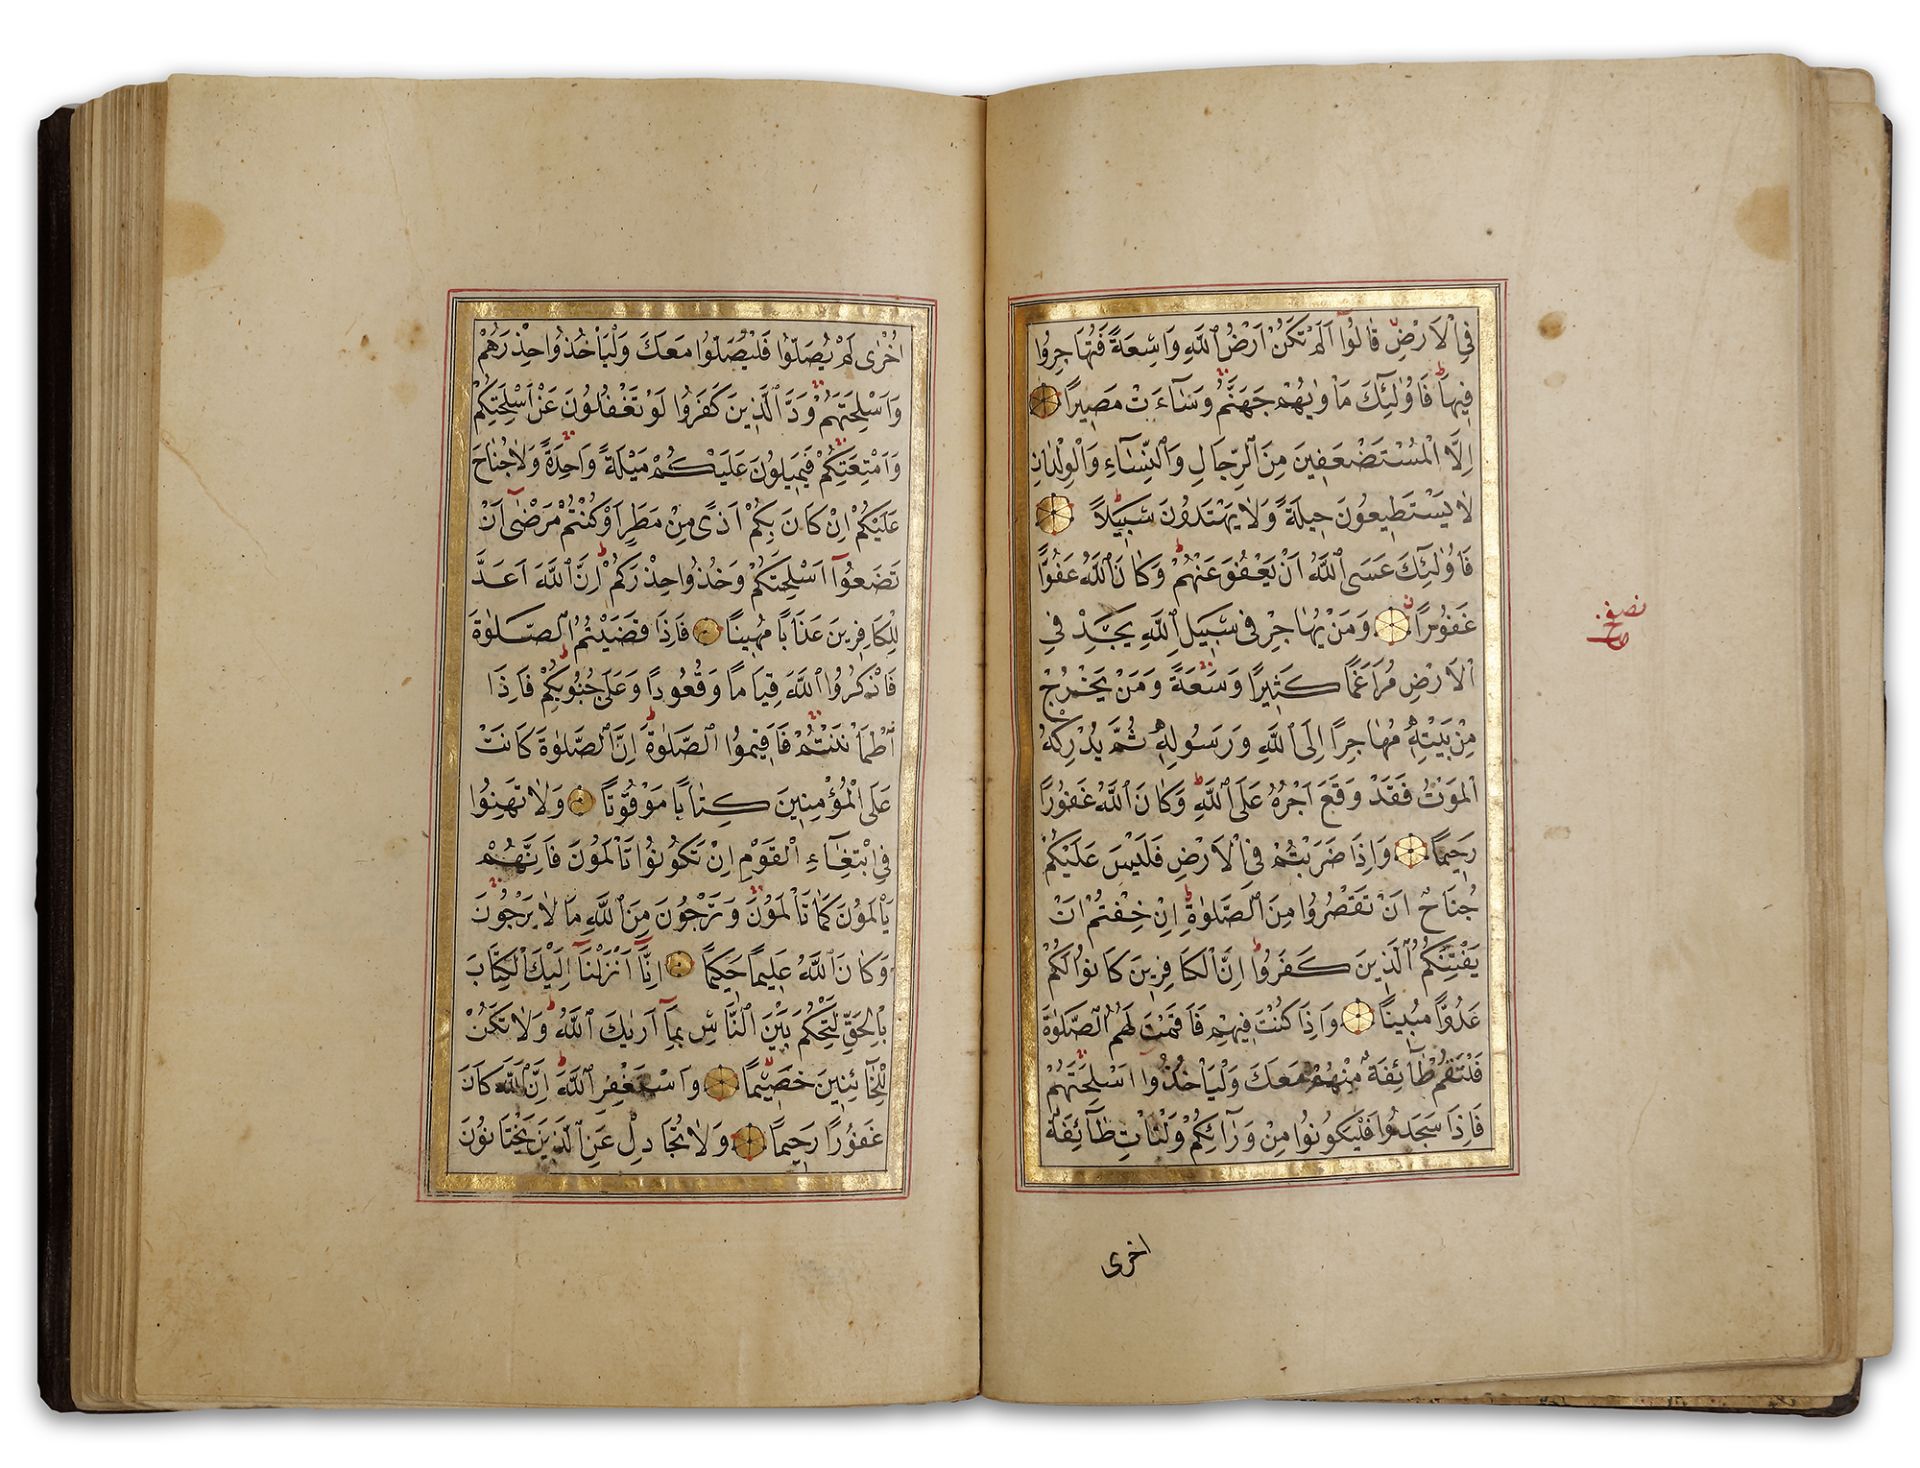 فِي الْاَرْضِ قَالُوا اَلَمْ تَكُنْ اَرْضُ اللّٰهِ وَاسِعَةً فَتُهَاجِرُوا
فِيهَا فَاُولٰئِكَ مَاْوٰيهُمْ جَهَنَّمُ وَسَاءَتْ مَصِيرًا
اِلَّا الْمُسْتَضْعَفِينَ مِنَ الرِّجَالِ وَالنِّسَاءِ وَالْوِلْدَانِ
لَا يَسْتَطِيعُونَ حِيلَةً وَلَا يَهْتَدُونَ سَبِيلًا
فَاُولٰئِكَ عَسَى اللّٰهُ اَنْ يَعْفُوَ عَنْهُمْ وَكَانَ اللّٰهُ عَفُوًّا
غَفُورًا وَمَنْ يُهَاجِرْ فِي سَبِيلِ اللّٰهِ يَجِدْ فِي
الْاَرْضِ مُرَاغَمًا كَثِيرًا وَسَعَةً وَمَنْ يَخْرُجْ
مِنْ بَيْتِهِ مُهَاجِرًا اِلَى اللّٰهِ وَرَسُولِهِ ثُمَّ يُدْرِكْهُ
الْمَوْتُ فَقَدْ وَقَعَ اَجْرُهُ عَلَى اللّٰهِ وَكَانَ اللّٰهُ غَفُورًا
رَحِيمًا وَاِذَا ضَرَبْتُمْ فِي الْاَرْضِ فَلَيْسَ عَلَيْكُمْ
جُنَاحٌ اَنْ تَقْصُرُوا مِنَ الصَّلٰوةِ اِنْ خِفْتُمْ اَنْ
يَفْتِنَكُمُ الَّذِينَ كَفَرُوا اِنَّ الْكَافِرِينَ كَانُوا لَكُمْ
عَدُوًّا مُبِينًا وَاِذَا كُنْتَ فِيهِمْ فَاَقَمْتَ لَهُمُ الصَّلٰوةَ
فَلْتَقُمْ طَائِفَةٌ مِنْهُمْ مَعَكَ وَلْيَاْخُذُوا اَسْلِحَتَهُمْ
فَاِذَا سَجَدُوا فَلْيَكُونُوا مِنْ وَرَائِكُمْ وَلْتَاْتِ طَائِفَةٌ
اخرى
نصف
اُخْرٰى لَمْ يُصَلُّوا فَلْيُصَلُّوا مَعَكَ وَلْيَاْخُذُوا حِذْرَهُمْ
وَاَسْلِحَتَهُمْ وَدَّ الَّذِينَ كَفَرُوا لَوْ تَغْفُلُونَ عَنْ اَسْلِحَتِكُمْ
وَاَمْتِعَتِكُمْ فَيَمِيلُونَ عَلَيْكُمْ مَيْلَةً وَاحِدَةً وَلَا جُنَاحَ
عَلَيْكُمْ اِنْ كَانَ بِكُمْ اَذًى مِنْ مَطَرٍ اَوْ كُنْتُمْ مَرْضٰى اَنْ
تَضَعُوا اَسْلِحَتَكُمْ وَخُذُوا حِذْرَكُمْ اِنَّ اللّٰهَ اَعَدَّ
لِلْكَافِرِينَ عَذَابًا مُهِينًا فَاِذَا قَضَيْتُمُ الصَّلٰوةَ
فَاذْكُرُوا اللّٰهَ قِيَامًا وَقُعُودًا وَعَلٰى جُنُوبِكُمْ فَاِذَا
اطْمَاْنَنْتُمْ فَاَقِيمُوا الصَّلٰوةَ اِنَّ الصَّلٰوةَ كَانَتْ
عَلَى الْمُؤْمِنِينَ كِتَابًا مَوْقُوتًا وَلَا تَهِنُوا
فِي ابْتِغَاءِ الْقَوْمِ اِنْ تَكُونُوا تَاْلَمُونَ فَاِنَّهُمْ
يَاْلَمُونَ كَمَا تَاْلَمُونَ وَتَرْجُونَ مِنَ اللّٰهِ مَا لَا يَرْجُونَ
وَكَانَ اللّٰهُ عَلِيمًا حَكِيمًا اِنَّا اَنْزَلْنَا اِلَيْكَ الْكِتَابَ
بِالْحَقِّ لِتَحْكُمَ بَيْنَ النَّاسِ بِمَا اَرٰيكَ اللّٰهُ وَلَا تَكُنْ
لِلْخَائِنِينَ خَصِيمًا وَاسْتَغْفِرِ اللّٰهَ اِنَّ اللّٰهَ كَانَ
غَفُورًا رَحِيمًا وَلَا تُجَادِلْ عَنِ الَّذِينَ يَخْتَانُونَ